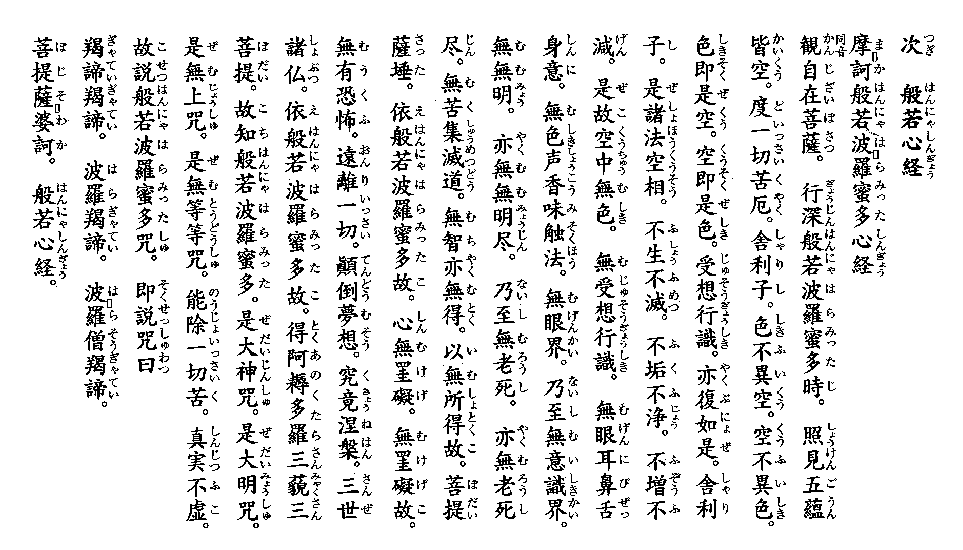 次　般若心経
摩訶般若波羅蜜多心経
観自在菩薩。　行深般若波羅蜜多時。　照見五蘊
皆空。度一切苦厄。舎利子。色不異空。空不異色。
色即是空。空即是色。受想行識。亦復如是。舎利
子。是諸法空相。不生不滅。不垢不浄。不増不
減。是故空中無色。無受想行識。無眼耳鼻舌
身意。無色声香味触法。無眼界。乃至無意識界。
無無明。亦無無明尽。乃至無老死。亦無老死
尽。無苦集滅道。無智亦無得。以無所得故。菩提
薩埵。依般若波羅蜜多故。心無罣礙。無罣礙故。
無有恐怖。遠離一切。顛倒夢想。究竟涅槃。三世
諸仏。依般若波羅蜜多故。得阿耨多羅三藐三
菩提。故知般若波羅蜜多。是大神咒。是大明咒。
是無上咒。是無等等咒。能除一切苦。真実不虚。
故説般若波羅蜜多咒。即説咒曰
羯諦羯諦。　波羅羯諦。　波羅僧羯諦。
菩提薩婆訶。　般若心経。